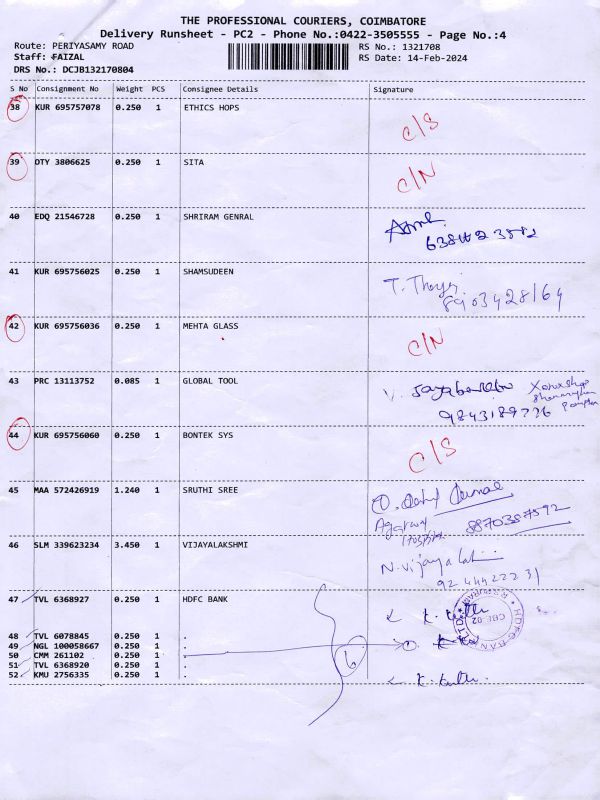 THE PROFESSIONAL COURIERS, COIMBATORE
Delivery Runsheet - PC2 - Phone No.:0422-3505555 - Page No.:4
Route: PERIYASAMY ROAD RS No.: 1321708
Staff: FAIZAL RS Date: 14-Feb-2024
DRS No.: DCJB132170804
S No Consignment No Weight PCS Consignee Details Signature
38 KUR 695757078 0.250 1 ETHICS HOPS C/S
39 OTY 3806625 0.250 1 SITA C/N
40 EDQ 21546728 0.250 1 SHRIRAM GENRAL
41 KUR 695756025 0.250 1 SHAMSUDEEN
8903428164
42 KUR 695756036 0.250 1 MEHTA GLASS C/N
43 PRC 13113752 0.085 1 GLOBAL TOOL
9843189736
44 KUR 695756060 0.250 1 BONTEK SYS C/S
45 MAA 572426919 1.240 1 SRUTHI SREE
8870387592
46 SLM 339623234 3.450 1 VIJAYALAKSHMI
9244422231
47 TVL 6368927 0.250 1 HDFC BANK
48 TVL 6078845 0.250 1 .
49 NGL 100058667 0.250 1 .
50 CMM 261102 0.250 1 .
51 TVL 6368920 0.250 1 .
52 KMU 2756335 0.250 1 .
6